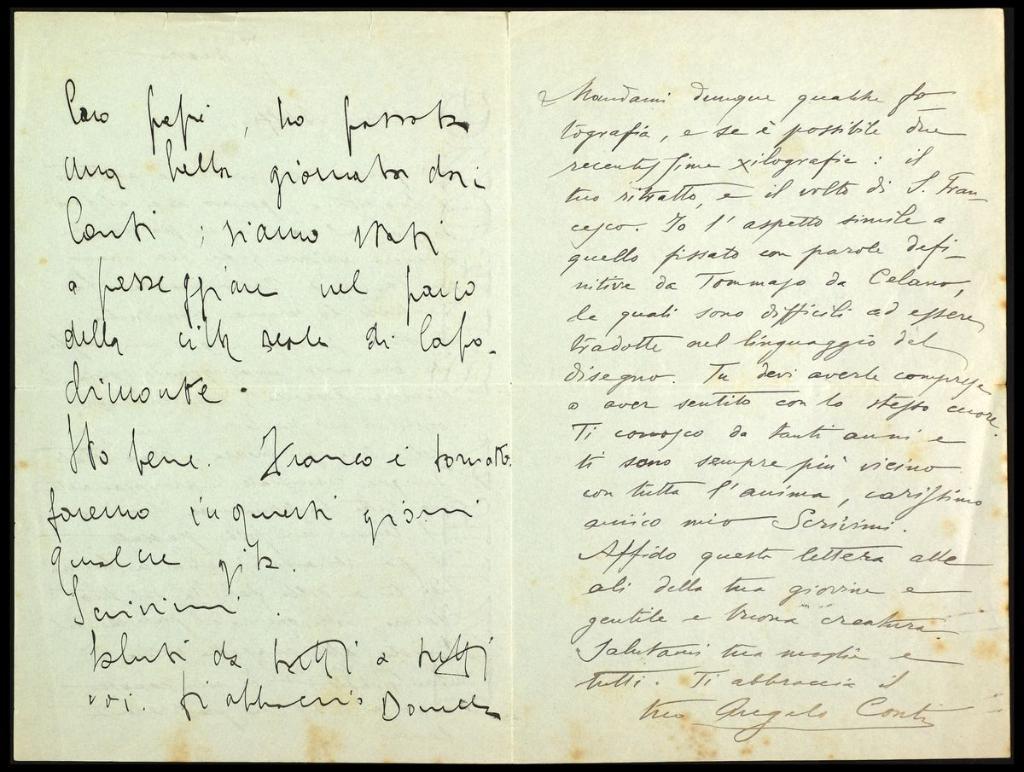 Caro papi, ho passato
una bella giornata dai
Conti; siamo stati
a passeggiare nel parco
della villa reale di Capo-
dimonte.
Sto bene. Franco è tornato.
faremo in questi giorni
qualche gita.
Scrivimi.
Saluti da tutti a tutti
voi. ti abbraccio
Mandami dunque qualche fo
tografia, e se è possibile due
recentissime xilografie: il
tuo ritratto, e il volto di S. Fran-
cesco. Io l'aspetto simile a
quello fissato con parole defi-
nitive da Tommaso da Celano,
le quali sono difficili ad essere
tradotte nel linguaggio del
disegno. Tu devi averle comprese
o aver sentito con lo stesso cuore.
Ti conosco da tanti anni e
ti sono sempre più vicino
con tutta l'anima, carissimo
amico mio Scrivimi.
Affido questa lettera alle
ali della tua giovine e
gentile e buona creatura.
Salutami tua moglie e
tutti. Ti abbraccia il
tuo Angelo Conti